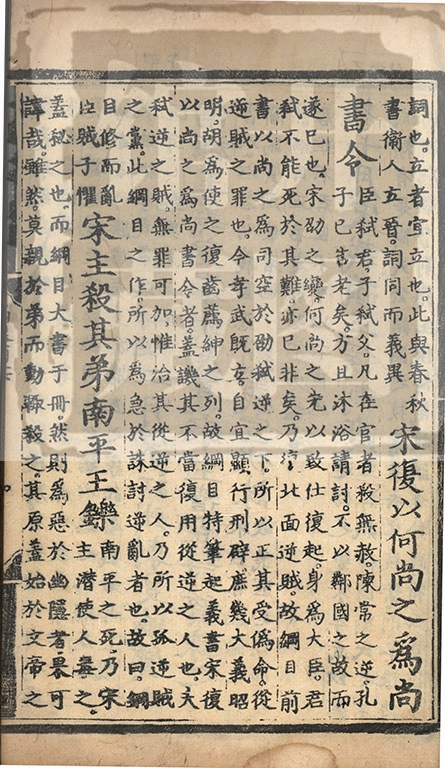 詞也。立者宜立也。此與春秋
書衛人立晉。詞同而義異
宋復以何尚之爲尚
書令
臣弑君。子弑父。凡在官者殺無赦。陳常之逆。孔
子已告老矣。方且沐浴請討。不以鄰國之故而
遂已也。宋劭之變。何尚之先以致仕復起。身爲大臣。君
弑不能死於其難。亦已非矣。乃北面逆賊。故綱目前
書以尚之爲司空於劭弑逆之下。所以正其受偽命。從
逆賊之罪也。今孝武既立。自宜顯行刑辟。庶幾大義昭
明。胡爲使之復齒薦紳之列。故綱目特筆起義。書宋復
以尚之爲尚書令者。蓋譏其不當復用從逆之人也。夫
弑逆之賊。無罪可加。惟治其從逆之人。乃所以孤逆賊
之黨。此綱目之作。所以爲急於誅討逆亂者也。故曰。綱
目修而亂
臣賊子懼
宋主殺其弟南平王鑠
南平之死。乃宋
主潛使人毒之。
蓋秘之也。而綱目大書于冊。然則爲惡於幽隱者。果可
諱哉。雖然。莫親於弟。而動輒殺之。其原蓋始於文帝之